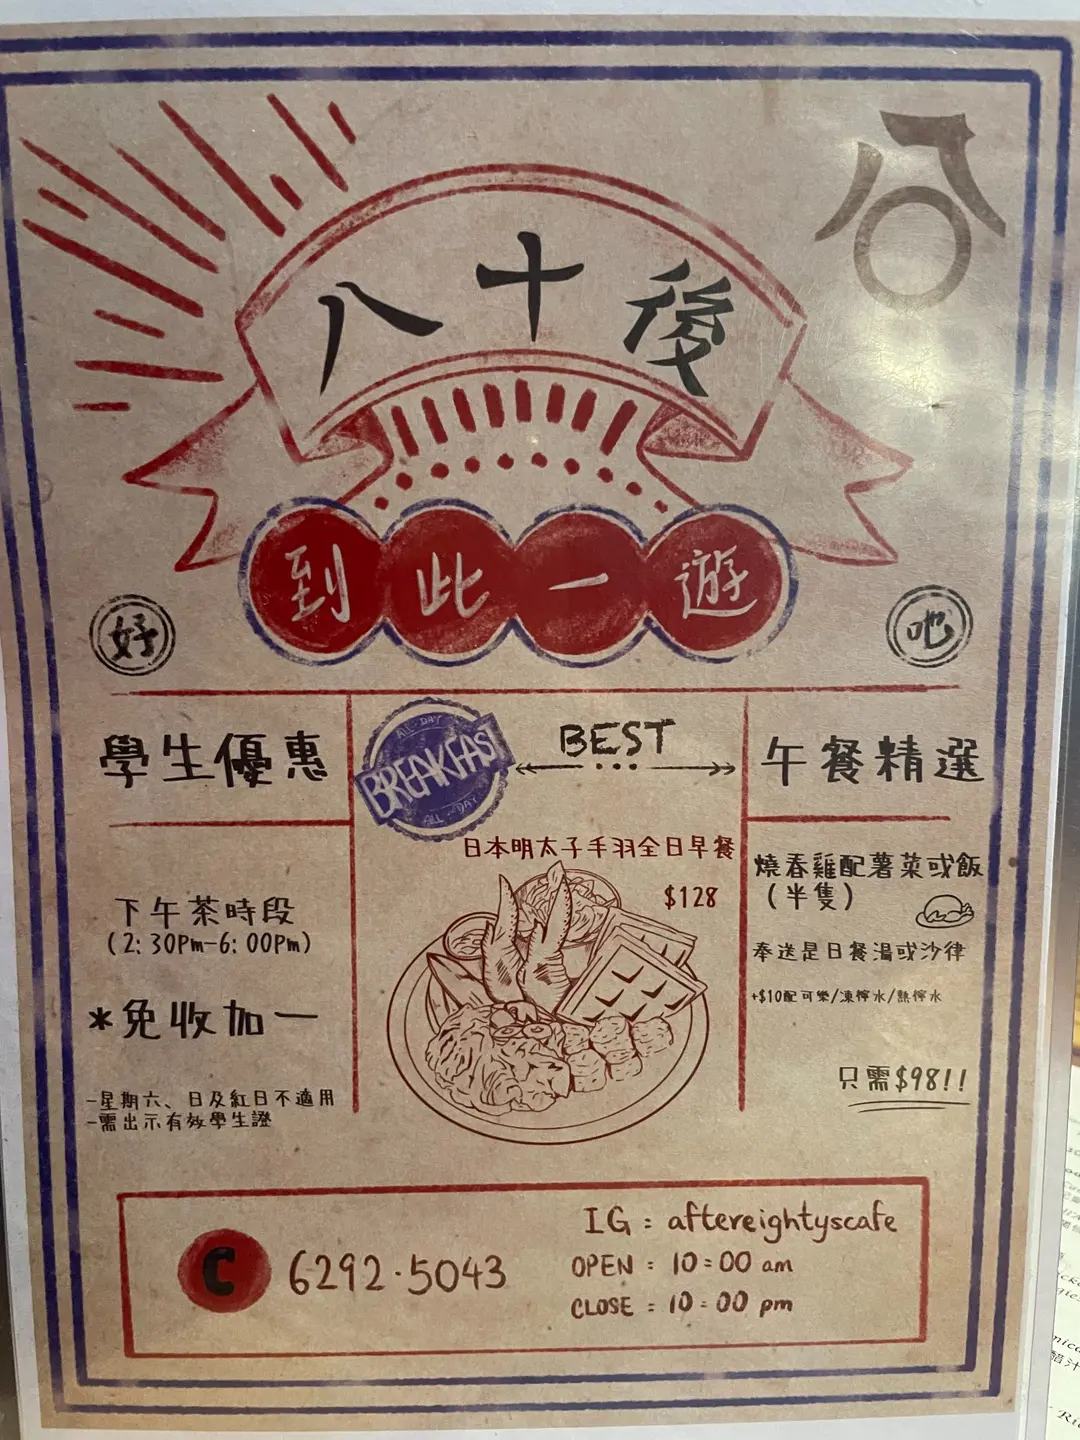 八十後
到此一遊
好
吔
學生優惠
下午茶時段
(2:30Pm-6:00Pm)
*免收加一
-星期六、日及紅日不適用
-需出示有效學生證
ALL-DAY
BREAKFAST
ALL-DAY
BEST
日本明太子手羽全日早餐
$128
午餐精選
燒春雞配薯菜或飯
(半隻)
奉送是日餐湯或沙律
+$10配可樂/凍檸水/熱檸水
只需$98!!
6292·5043
IG : aftereightyscafe
OPEN : 10:00 am
CLOSE : 10:00 pm